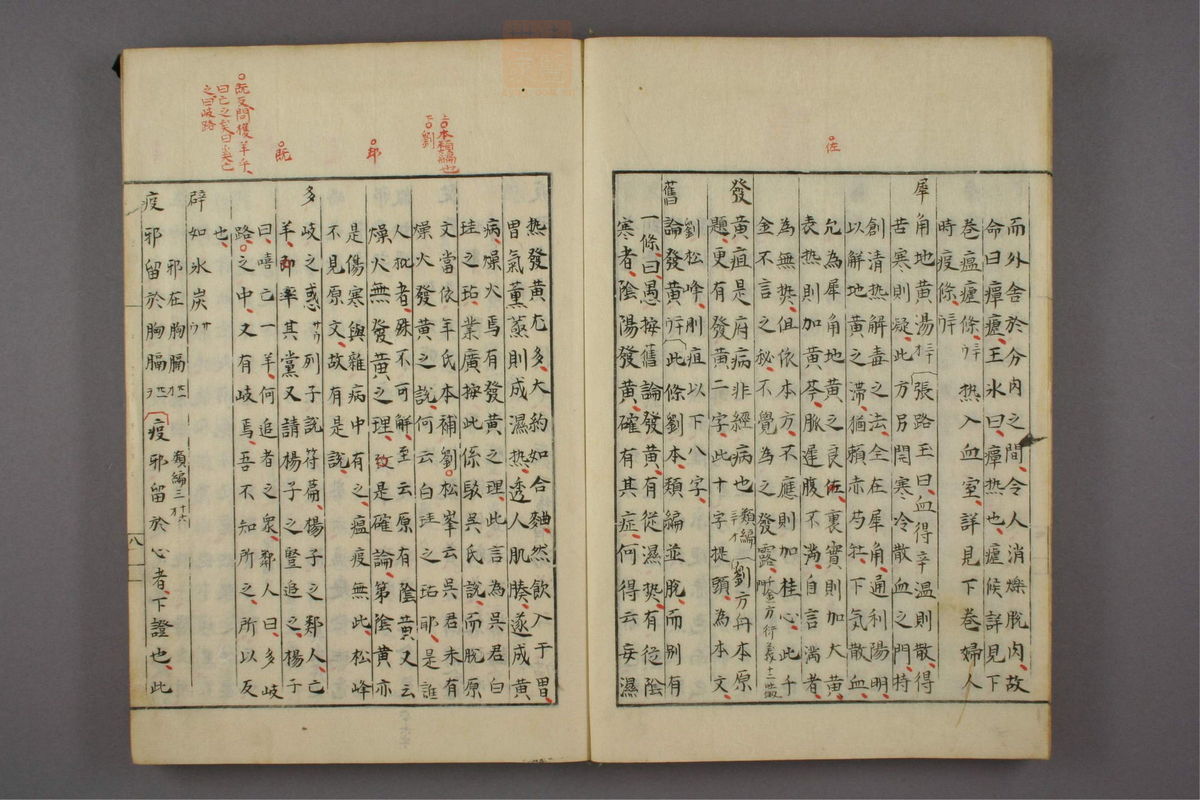 佐
而外舍於分肉之間令人消爍脫肉故
命曰癉瘧王氷曰癉熱也瘧候詳見下
卷瘟瘧條 熱入血室詳見下卷婦人
時疫條
犀角地黃湯 張路玉曰血得辛溫則散得
苦寒則凝此方另開寒冷散血之門特
創清熱解毒之法全在犀角通利陽明
以解地黃之滯猶賴赤芍 下気散血
允為犀角地黃之良佐裏實則加大黃
表熱則加黃芩脈遲腹不滿自言滿者
為無熱但依本方不應則加桂心此千
金不言之秘不覺為之發露 千金方衍義十二
發黃疸是府病非經病也 類編 劉方舟本原
題更有發黃二字此十字提頭為本文
劉松峰刪疸以下八字
舊論發黃 此條劉本類編並脫而別有
一條曰愚按舊論發黃有從濕熱有從陰
寒者陰陽發黃確有其症何得云妄濕
上本類編也
下劉
耶
既
既反問獲羊乎
曰亡之矣曰奚亡
之曰岐路
热發黃尤多大約如合麯然飲入于胃
胃氣薰蒸則成濕热透人肌腠遂成黃
病燥火焉有發黃之理此言為吳君白
珪之玷業廣按此係駁吳氏說而脫原
文當依年氏本補劉松峯云吳君未有
燥火發黃之說何云白珪之玷耶是誰
人批者殊不可解至云原有陰黃又云
燥火無發黃之理致是確論第陰黃亦
是傷寒與雜病中有之瘟疫無此松峰
不見原文故有是說
多岐之惑 列子說符篇楊子之鄰人亡
羊即率其黨又請楊子之豎追之楊子
曰嘻亡一羊何追者之衆鄰人曰多岐
路之中又有岐焉吾不知所之所以反
也
辟如氷炭 邪在胸膈 類編三
疫邪留於胸膈 疫邪留於心者下證也此
八